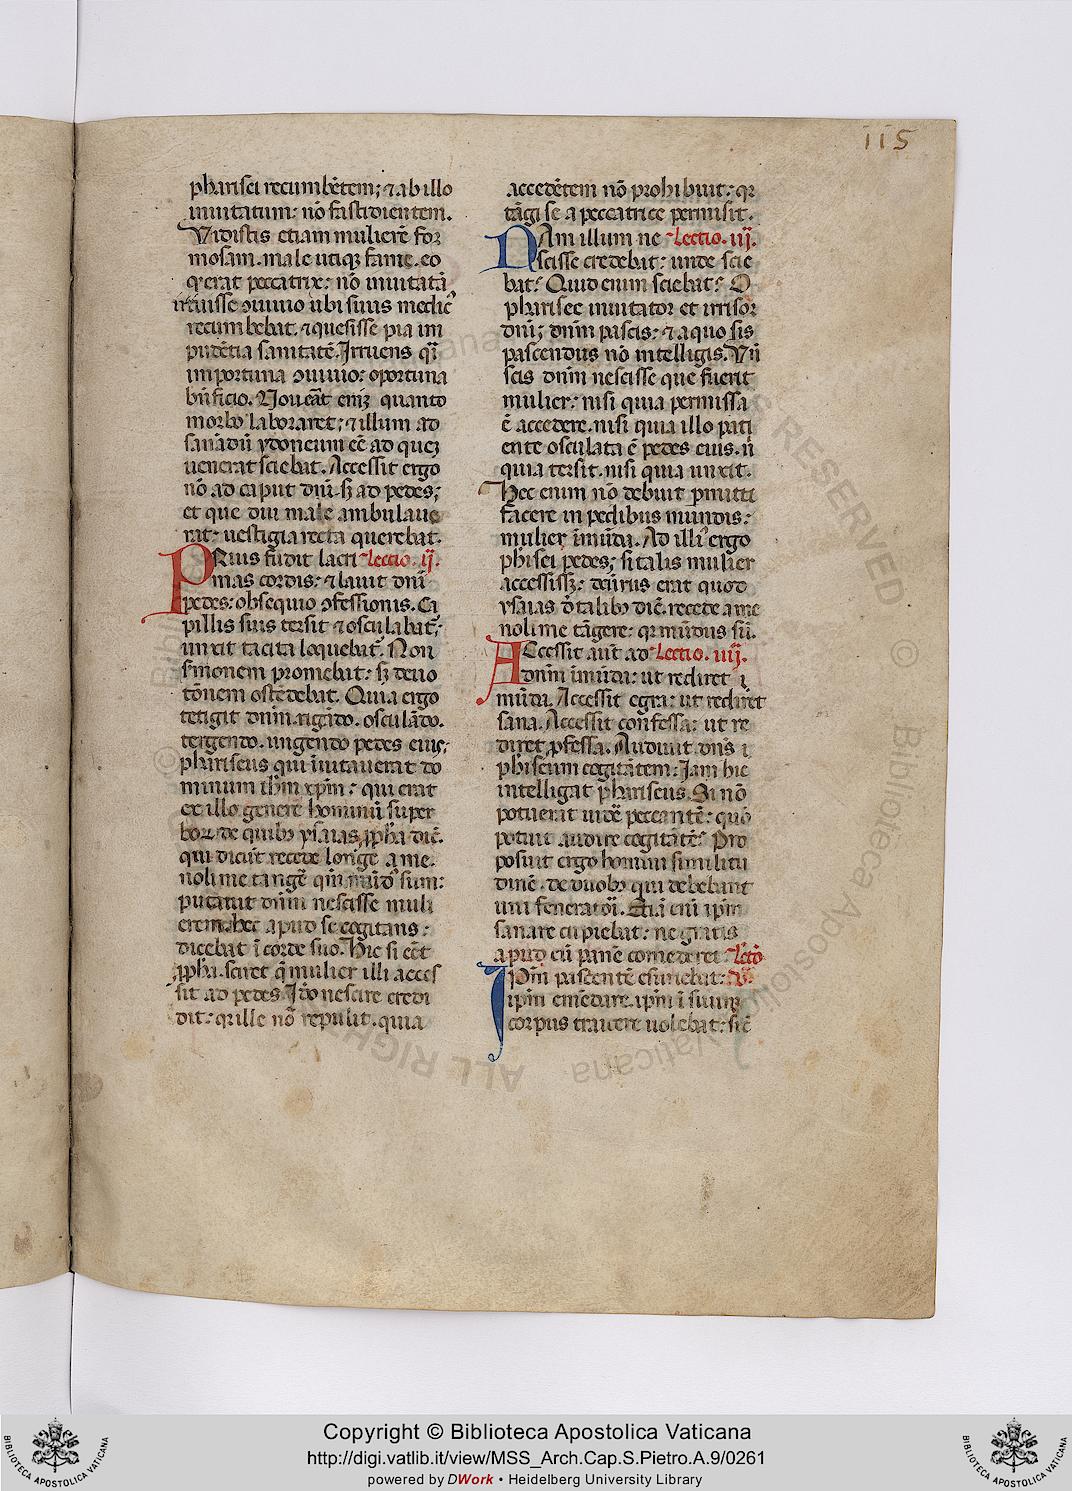 115
pharisei recumbētem; ⁊ ab illo
inuitatum: nō fastidientem.
Vidistis etiam mulierē foꝛ
mosam. male utiqꝫ fame. eo
q̄ erat peccatrix: nō inuitatā
irruisse ↄuiuio ubi suus medic᾽
recumbebat. ⁊ quesisse pia im
pudētia sanitatē. Irruens q̄i
importuna ↄuiuio: oportuna
bn̄ficio. Nouerāt enīꝫ quanto
morbo laboraret; ⁊ illum ad
sanādū ydoneum eē ad queꝫ
uenerat sciebat. Accessit ergo
nō ad caput dn̄i. sꝫ ad pedes;
et que diu male ambulaue
rat: uestigia recta querebat.
PRius fudit lacri Lectio. ij.
mas cordis: ⁊ lauit dn̄i
pedes: obsequio ↄfessionis. Ca
pillis suis tersit ⁊ osculabat᷑;
unxit tacita loquebat᷑. Non
s̄monem promebat: sꝫ deuo
tōnem ostēdebat. Quia ergo
tetigit dn̄m. rigādo. osculādo.
tergendo. ungendo pedes eius;
phariseus qui īuitauerat do
minum ih̄m xp̄m: qui erat
ex illo genere hominū super
boꝝ. de quibꝫ ysaias ꝓpha dic̄.
qui dicūt recede longe a me.
noli me tangē qm̄ mūd᾽ sum:
putauit dn̄m nescisse muli
erem. hec apud se cogitans:
dicebat ī corde suo. Hic si eēt
ꝓpha. sciret q̄ mulier illi acces
sit ad pedes. Ido nescire credi
dit: qꝛ ille nō repulit. quia
accedētem nō prohibuit: qꝛ
tāgi se a peccatrice permisit.
NAm illum ne Lectio. iij.
scisse credebat: unde scie
bat? Quid enim sciebat? O
pharisee inuitator et irrisor
dn̄i; dn̄m pascis: ⁊ a quo sis
pascendus nō intelligis. Vn̄
scis dn̄m nescisse que fuerit
mulier: nisi quia permissa
ē accedere. nisi quia illo pati
ente osculata ē pedes eius. n̄
quia tersit. nisi quia unxit.
Hec enim nō debuit ꝑmitti
facere in pedibus mundis:
mulier īmūda. Ad illi᾽ ergo
phīsei pedes; si talis mulier
accessissꝫ: dcūrus erat quod
ysaias d̄ talibꝫ dic̄. recede a me
noli me tāgere: qꝛ mūdus sū.
ACcessit aut̄ ad Lectio. iiij.
dn̄m īmūda: ut rediret ī
mūda. Accessit egra: ut rediret
sana. Accessit confessa: ut re
diret ꝓfessa. Audiuit dn̄s ī
phīseum cogitātem: Iam hic
intelligat phariseus. Si nō
potuerat uidē peccantē: quō
potuit audire cogitātē? Pro
posuit ergo homini similitu
dinē. de duobꝫ qui debebant
uni feneratoī. Etiā enī ipm̄
sanare cupiebat: ne gratis
apud eū panē comederet. Lctō
Ipm̄ pascentē esuriebat: v.
ipm̄ emēdare. ipm̄ ī suum
corpus traicere uolebat: sic̄
Copyright © Biblioteca Apostolica Vaticana
http://digi.vatlib.it/view/MSS_Arch.Cap.S.Pietro.A.9/0261
powered by DWork • Heidelberg University Library
BIBLIOTECA APOSTOLICA VATICANA
BIBLIOTECA APOSTOLICA VATICANA
© Biblioteca Apostolica Vaticana ALL RIGHTS RESERVED